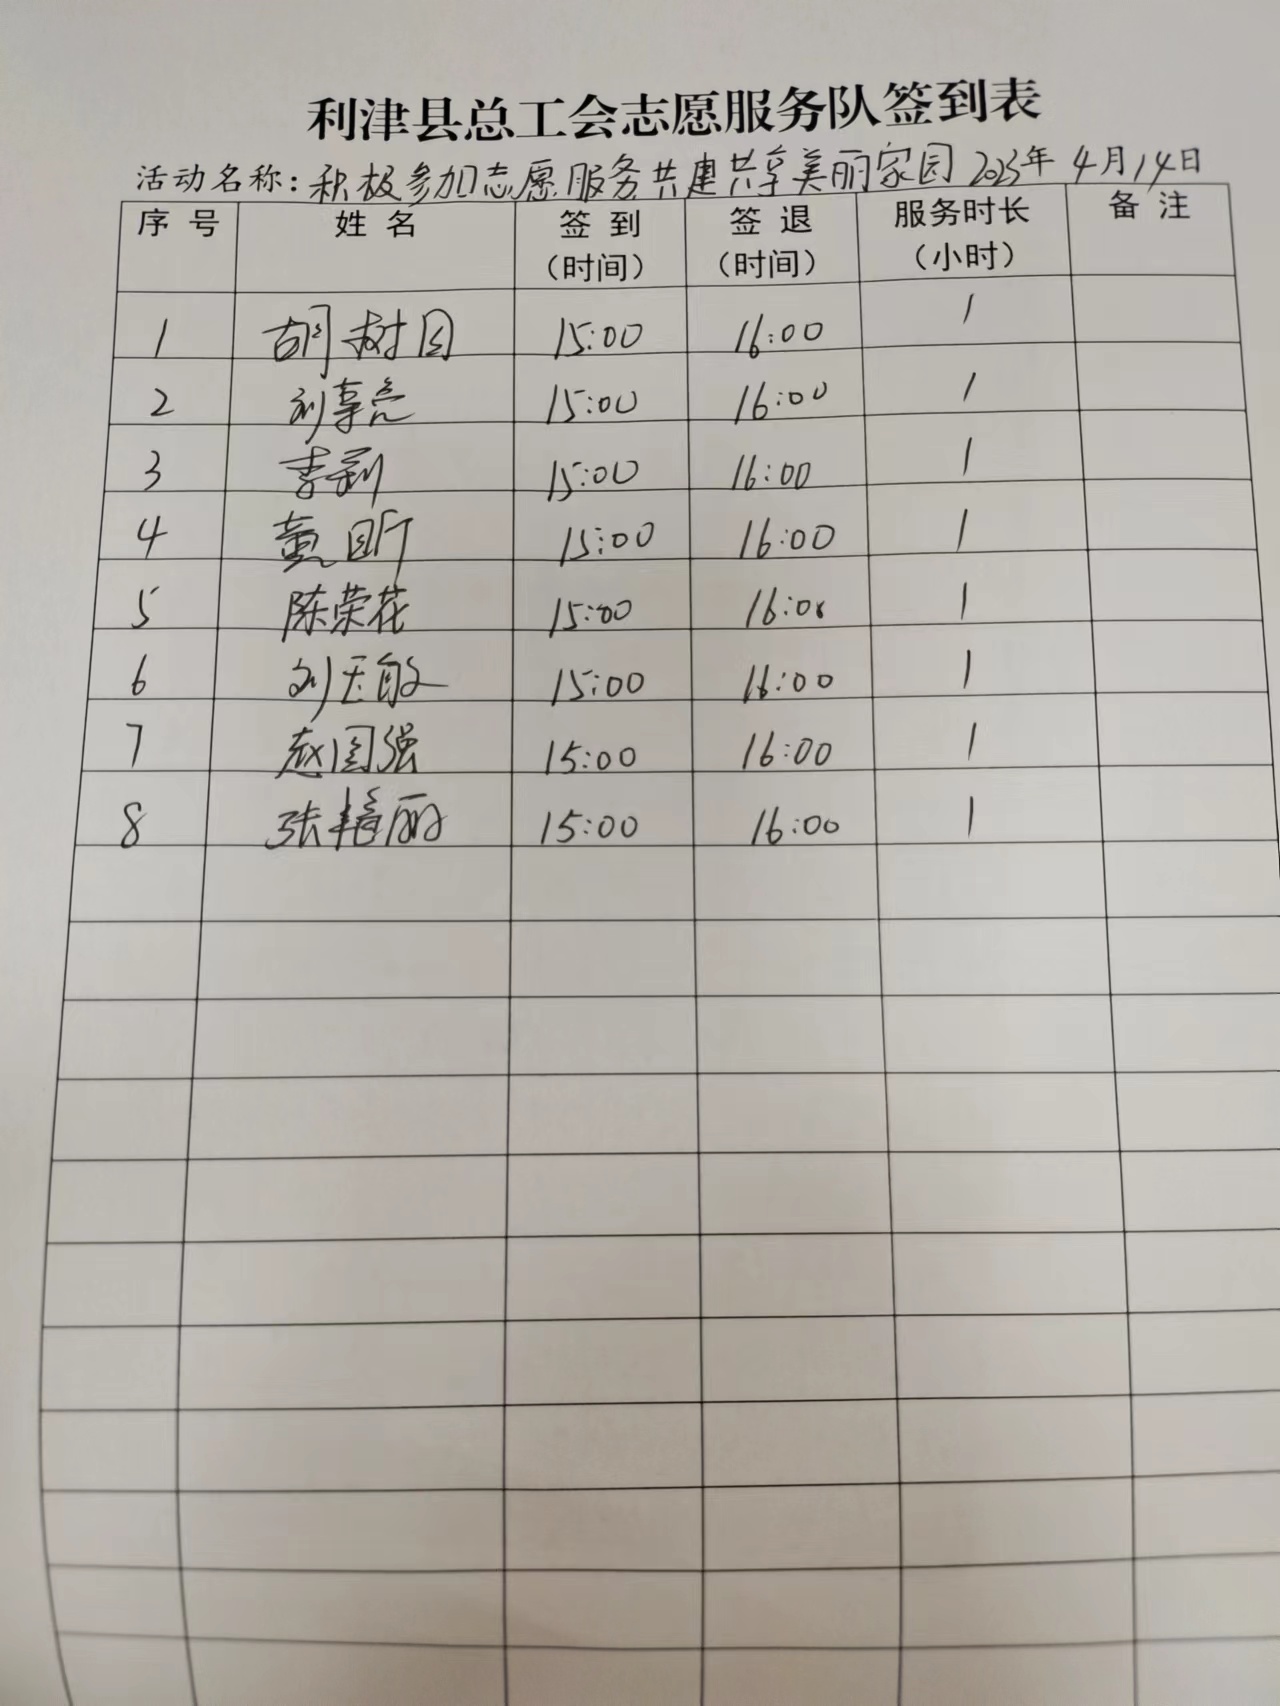 利津县总工会志愿服务队签到表
活动名称：积极参加志愿服务共建共享美丽家园 2023年 4月14日
序号 姓名 签到（时间） 签退（时间） 服务时长（小时） 备注
1 胡树国 15:00 16:00 1
2 刘享亮 15:00 16:00 1
3 李莉 15:00 16:00 1
4 董昕 15:00 16:00 1
5 陈荣花 15:00 16:00 1
6 刘玉敏 15:00 16:00 1
7 赵国强 15:00 16:00 1
8 张艳丽 15:00 16:00 1